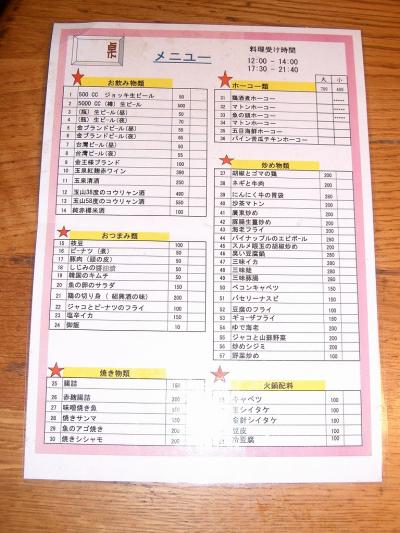 メニュー
料理受け時間
12:00 - 14:00
17:30 - 21:40
お飲み物類
1 500 CC ジョッキ生ビール 50
2 5000 CC (樽) 生ビール 500
3 (瓶) 生ビール(昼)
4 (瓶) 生ビール(夜)
5 金ブランドビール(昼) 55
6 金ブランドビール(夜) 65
7 台湾ビール(昼) 50
8 台湾ビール(夜) 55
9 金王様ブランド 100
10 玉泉紅麹わイン 390
11 玉泉清酒 250
12 玉山38度のコウリャン酒 490
13 玉山58度のコウリャン酒 550
14 純赤標米酒 100
おつまみ類
15 枝豆 100
16 ピーナツ (煮) 50
17 豚肉 (頭の皮) 50
18 しじみの醤油漬 50
19 韓国のキムチ 50
20 魚の卵のサラダ 150
21 鶏の切り身 ( 紹興酒の味) 200
22 ジャコとピーナツのフライ 100
23 塩辛イカ 150
24 御飯 10
焼き物類
25 腸詰 150
26 赤麹腸詰 200
27 味噌焼き魚
28 焼きサンマ
29 魚のアゴ焼き 200
30 焼きシシャモ 200
ホーコー類
大 小
700 400
31 鶏酒煮ホーコー
32 マトンホーコー
33 魚の頭ホーコー
34 マトンホーコー
35 五目海鮮ホーコー
36 パイン苦瓜チキンホーコー
炒め物類
37 胡椒とゴマの鶏 200
38 ネギと牛肉 200
39 にんにく牛の胃袋 200
40 沙茶マトン 200
41 廣東炒め 200
42 麻腸生薑炒め 200
43 海老フライ 200
44 パイナップルのエビボール 200
45 スルメ眼玉の胡椒炒め 200
46 臭い豆腐鍋 200
47 三味イカ 200
48 三味蛙 200
49 三味豚腸 200
50 ベコンキャベツ 150
51 バセリーナスビ 150
52 豆腐のフライ 100
53 ギョーザフライ 150
54 ゆで海老 200
55 ジャコと山蘇野菜 200
56 炒めシジミ 150
57 野菜炒め 100
火鍋配料
キャベツ 100
生シイタケ 100
金針シイタケ 100
豆皮 100
冷豆腐 100